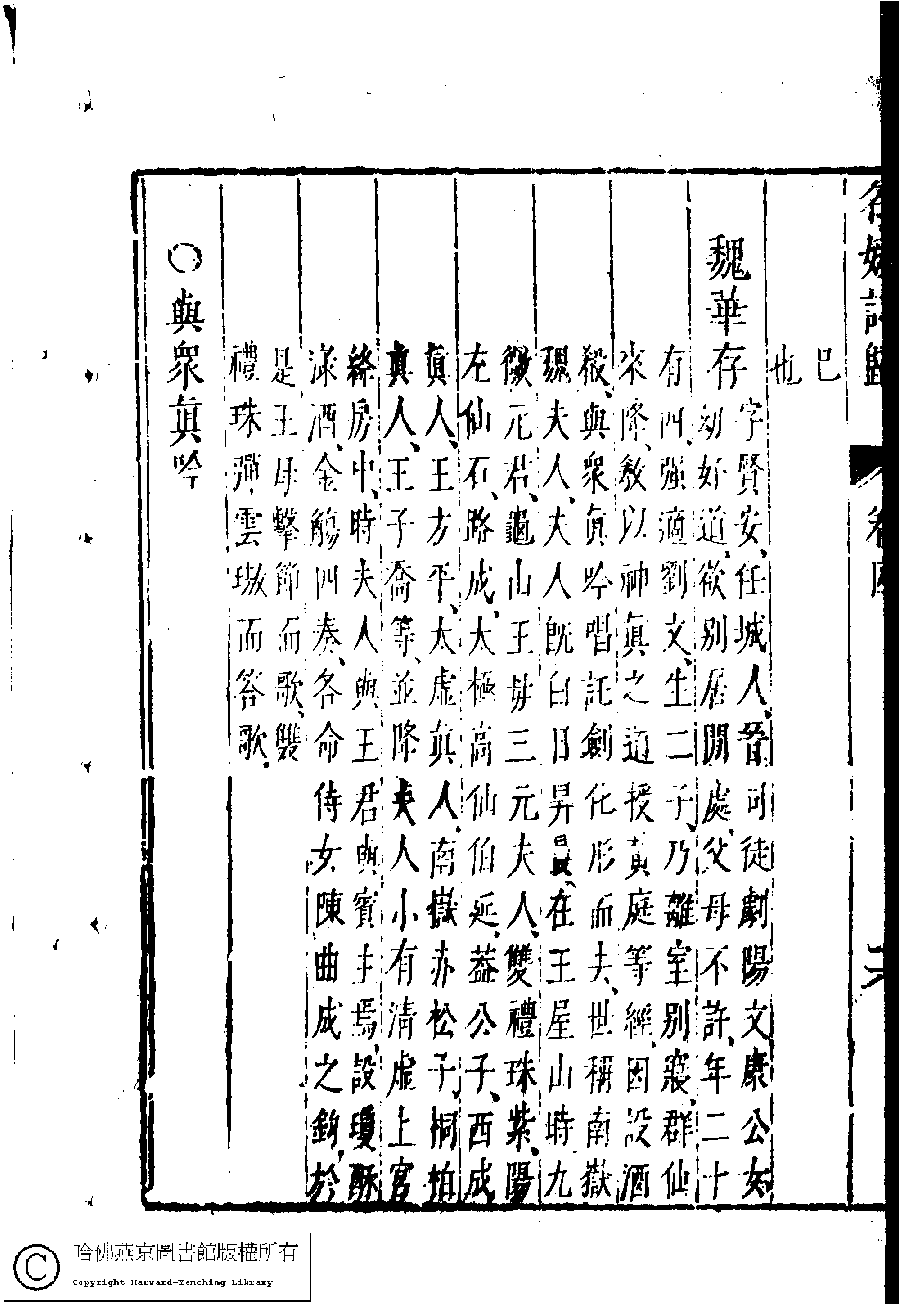 名媛詩歸 卷四
巳
也
魏華存
字賢安、任城人、晉司徒劇陽文康公女
幼好道、欲別居閒處、父母不許、年二十
有四、強適劉文、生二子、乃離室別寢、群仙
來降、教以神真之道、授黃庭等經、因設酒
殽、與衆眞吟唱、託劍化形而去、世稱南嶽
魏夫人、夫人旣白日昇晨、在王屋山時、九
微元君、龜山王母、三元夫人、雙禮珠、紫陽
左仙石路成、太極高仙伯延、葢公子、西成
眞人、王方平、太虛眞人、南嶽赤松子、桐栢
眞人、王子喬等、並降夫人小有清虛上宮
絳房中、時夫人與王君與賓主焉、設瓊酥
淥酒、金觴四奏、各命侍女陳曲成之鈞、於
是王母擊節而歌、雙
禮珠彈雲璈而答歌.
○與衆眞吟
哈佛燕京圖書館版權所有
Copyright Harvard-Yenching Library